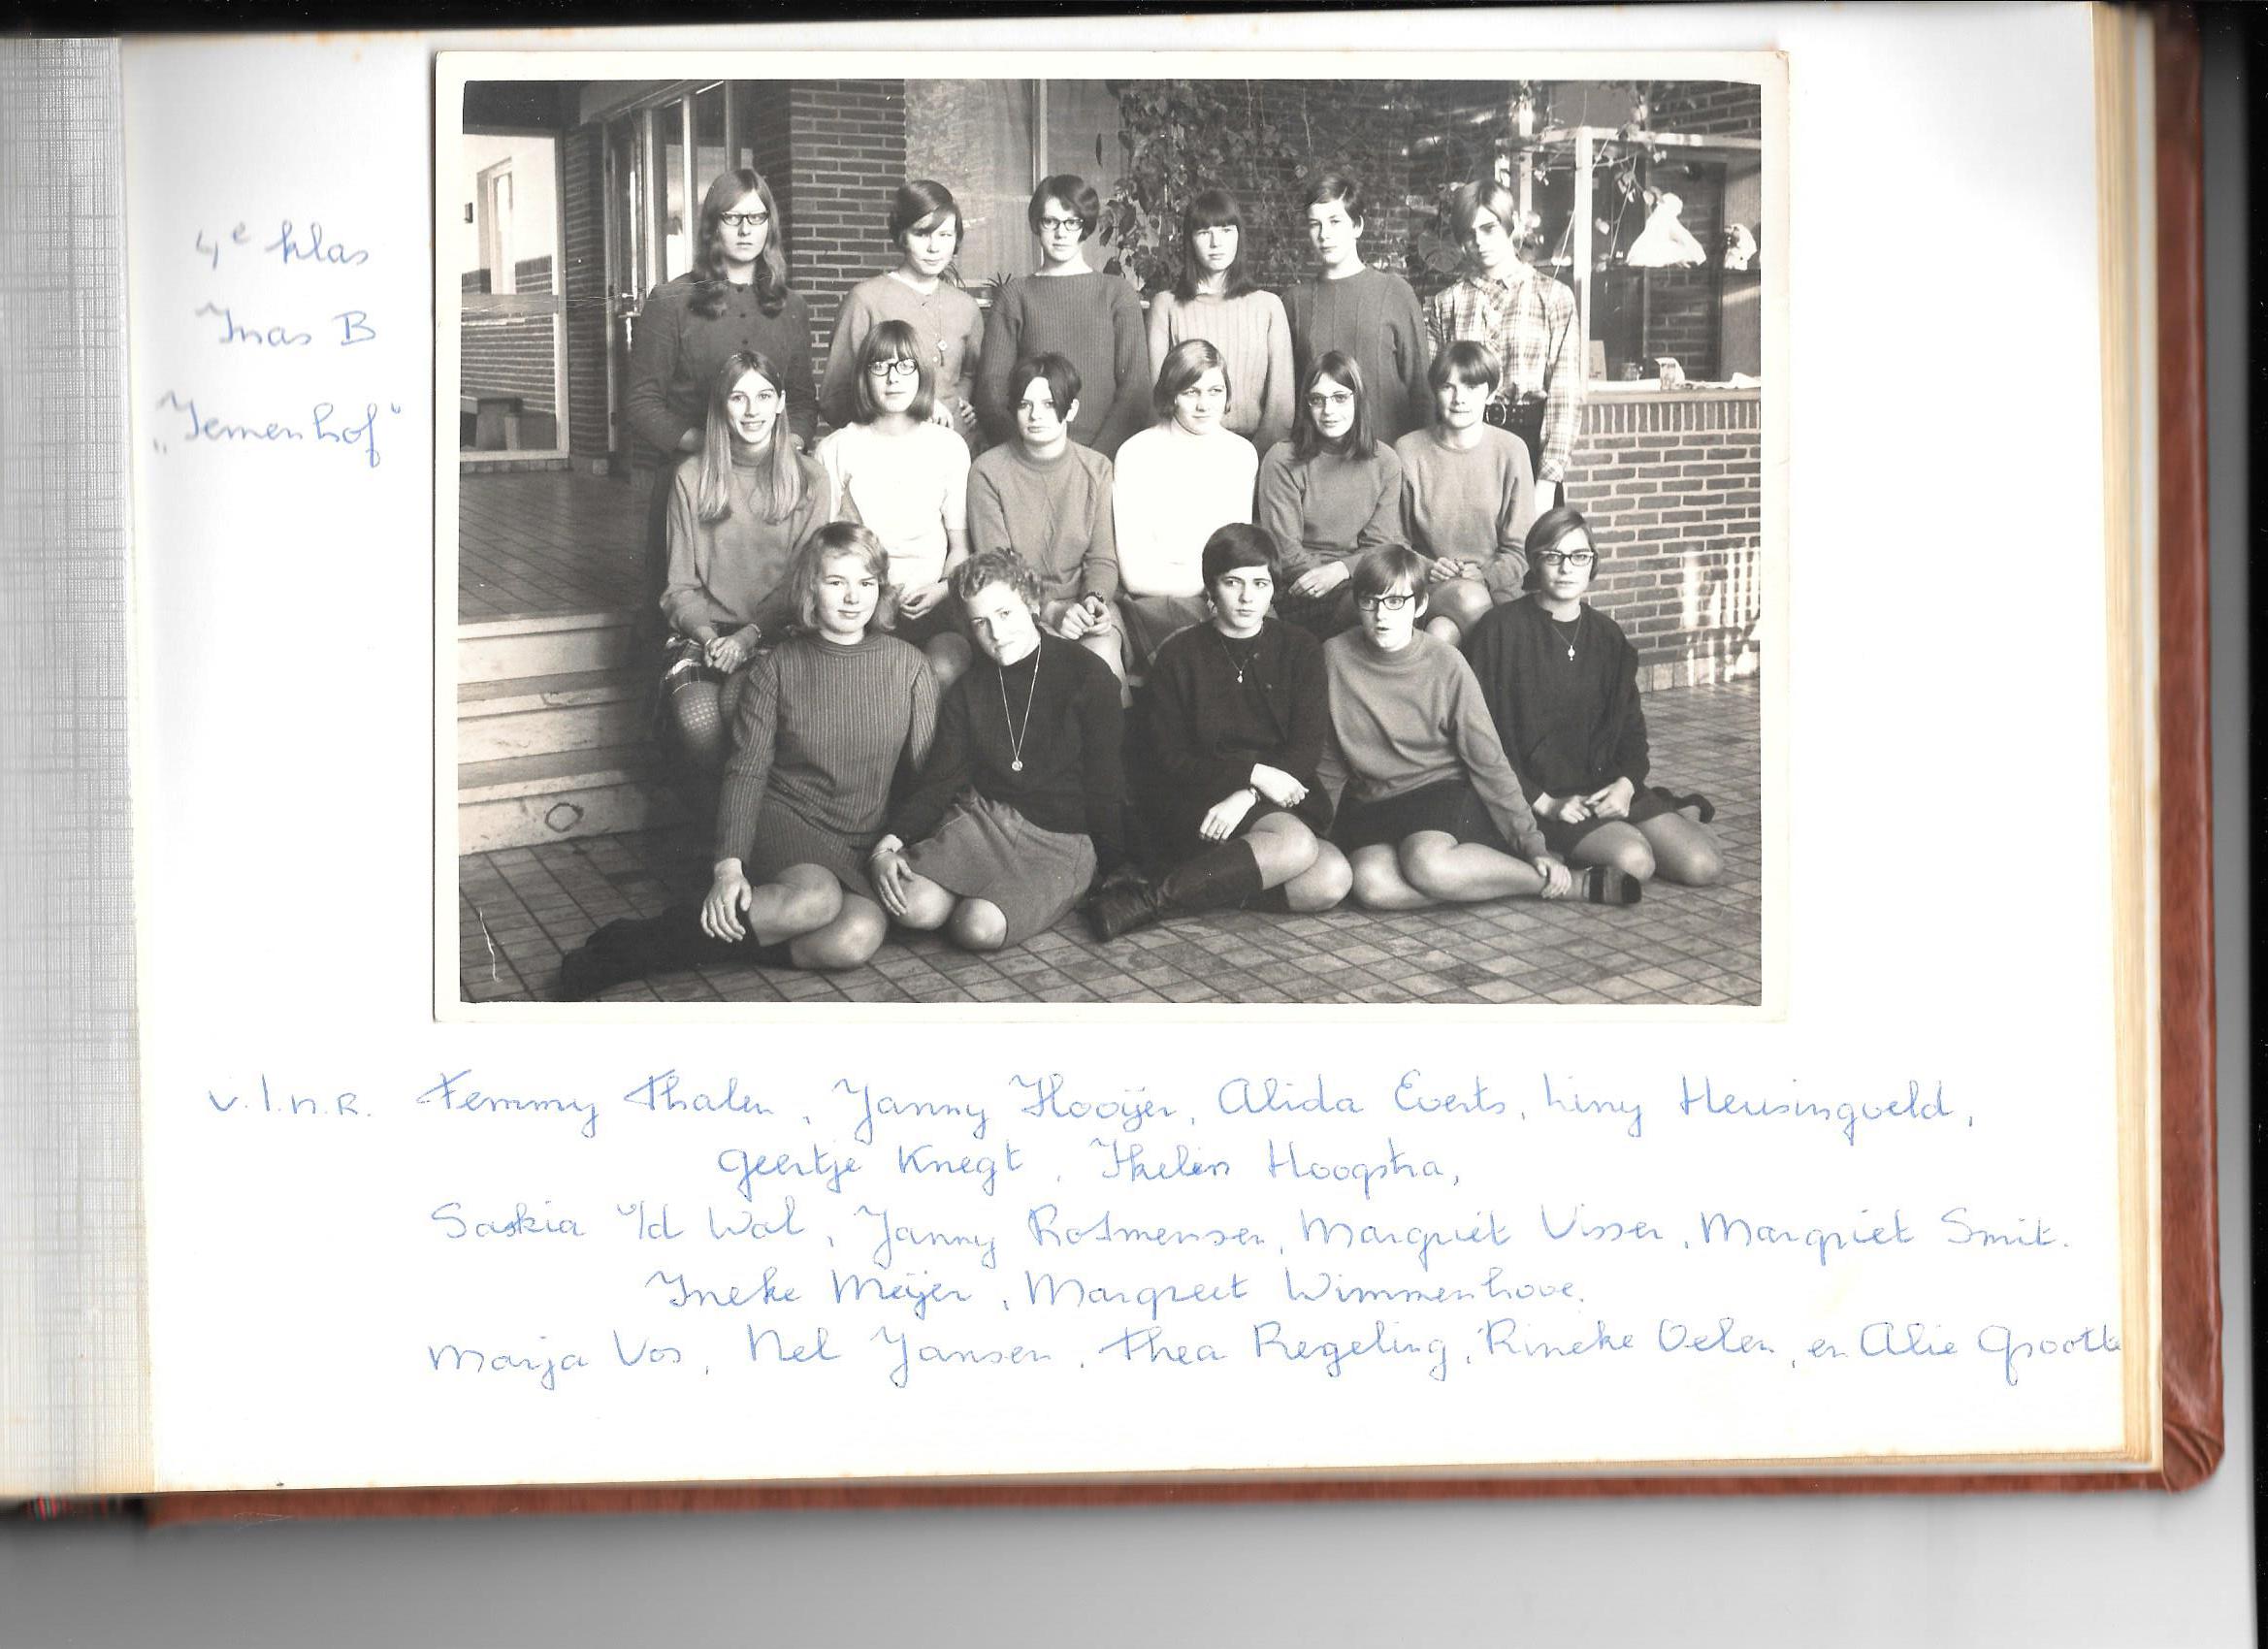 4e klas
Inas B
„Iemenhof"
v.l.n.r. Femmy Thalen, Janny Hooijer, Alida Everts, Liny Heusinqveld,
Geertje Knegt, Heleen Hoogstra,
Saskia v/d Wal, Janny Rotmensen, Margriet Visser, Margriet Smit.
Ineke Meijer, Margreet Wimmenhove.
Marja Vos, Nel Jansen, Thea Regeling, Rineke Oelen, en Alie Groot